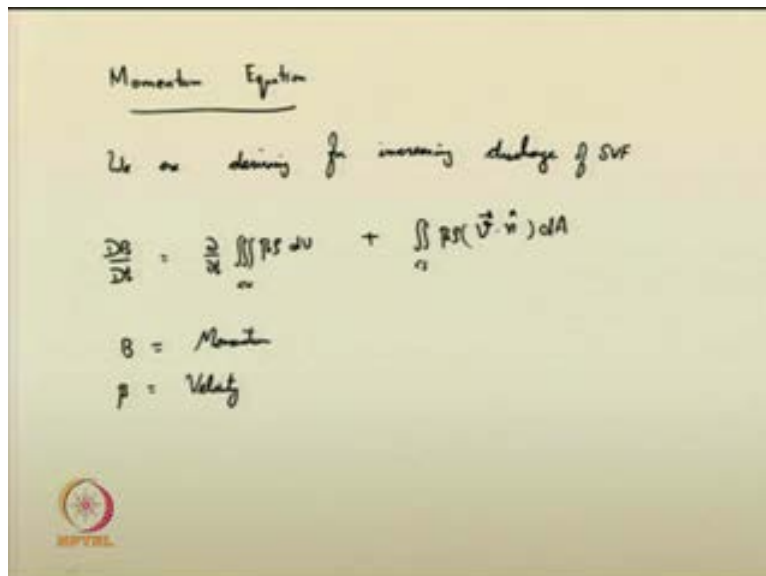 Momentum Equation
We are deriving for increasing discharge of SVF
DB/Dt = ∂/∂t ∭ βρ dv + ∬ βρ(V⃗·n̂)dA
cv cs
B = Momentum
β = Velocity
NPTEL